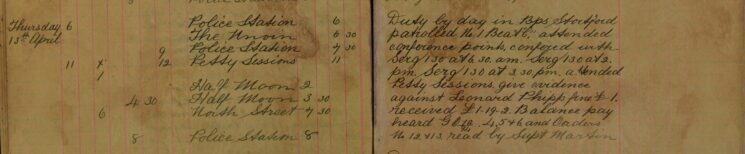 Police Station 6
Thursday 6 The Unoin 6 30
13th April 9 Police Station 4 30
11 x 12 Petty Sessions 11
1 Half Moon 2
4 30 Half Moon 3 30
6 North Street 4 30
8 Police Station 8
Duty by day in Bps Stortford
patrolled No 1 Beat 6, attended
conference points, confered with
Serg 130 at 6.30. am. Serg 130 at 2.
pm. Serg 130 at 3.30 pm. attended
Petty Sessions, give evidence
against Leonard Phipp fine £-1.
received £1-19-2 Balance pay
heard G O 4, 5 & 6 and Orders
No 12 & 13, read by Supt Martin